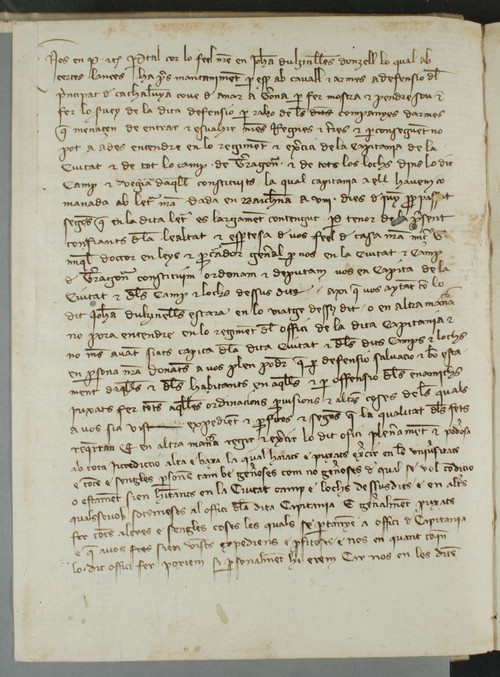 Nos en P. etc. Per tal cor lo feel nre en Johan dolzinelles donzell lo qual ab
certes lances ha pres manament per esser ab cavall et armes a defensio del
principat de Cathalunya cove danar a Gerona per fer mostra et pendre sou et
fer lo servey de la dita defensio per raho de les dites companyes darmes
q menacen de entrar et esvahir nres Regnes et terres et per conseguent no
pot a ades entendre en lo regiment et exercici de la Capitania de la
Ciutat et de tot lo camp de Terragona et de tots los lochs dins lo dit
Camp et vegeria daquell constituits la qual capitania a ell havem co
manada ab letra nra dada en Barchna a VIII dies de
segons q en la dita letra es largament contengut Per tenor de la present
confiants de la lealtat et de vos feel de casa nra
doctor en leys et procurador general per nos en la Ciutat et Camp
de Terragona constituim ordenam et deputam vos en Capita de la
Ciutat et dels Camp et lochs dessus dits axi q vos aytant co lo
dit Johan dolzinelles estara en lo viatge dessus dit o en altra manera
no pora entendre en lo regiment del offici de la dita Capitania et
no mes avant siats capita de la dita Ciutat et dels dits Camps et lochs
en persona nra donants a vos plen poder q per defensio salvacio et bo esta
ment daquells et dels habitants en aquells et per offensio dels enamichs
puxats fer totes aquelles ordinacions provisions et altres coses de les quals
a vos sia vist expedient et profitos et segons q la qualitat dels fets
requirran Et en altra manera regir et exercir lo dit ofici plenament et
ab tota jurediccio alta e baxa la qual hajats e puxats exercir en les universitats
e totes e sengles persones tambe generoses com no generoses de qual se vol condicio
o estament sien habitants en la Ciutat camp e lochs dessusdits e en altres
qualsevols sotsmeses al offici de la dita Capitania E generalment puxats
fer totes altres e sengles coses les quals se pertanyen a offici de Capitania
e q a vos fres sien vists expedients e profitoses e nos en quant com
lo dit offici fer poriem si personalment hi erem Car nos en les dites